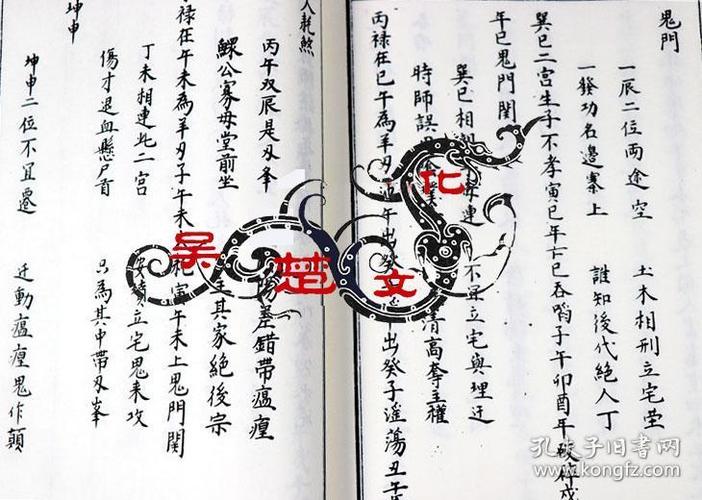 鬼門
一辰二位兩途空 土木相刑立宅塋
一發功名邊寨上 誰知後代絕人丁
巽巳二宮生子不孝寅巳年亡巳吞啗子午卯酉年
午巳鬼門関
巽巳相 連 不宜立宅與埋迁
時師誤 清高奪主權
丙禄在巳午為羊刃 午出癸 出癸子滛蕩丑午
人耗煞
丙午双辰是刃峯 陽差錯帶瘟㾮
鰥公寡母堂前坐 其家絕後宗
禄在午未為羊刃子午未 寅午未上鬼門関
丁未相連此二宮 立宅鬼来攻
傷才退血懸尸首 只為其中帶刃峯
坤申
坤申二位不宜遷 迁動瘟㾮鬼作顛
吴楚文化
孔夫子旧书网
www.kongfz.com